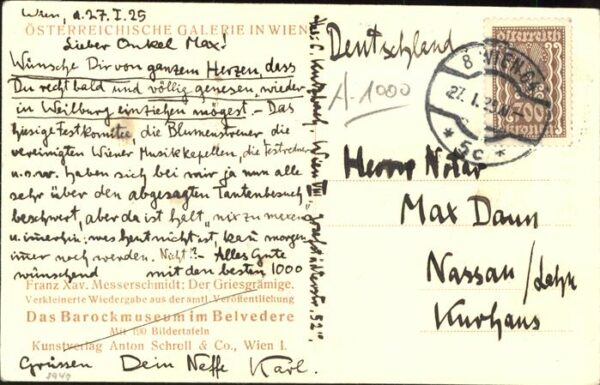 Wien, d. 27. I. 25
ÖSTERREICHISCHE GALERIE IN WIEN
Lieber Onkel Max!
Wünsche Dir von ganzem Herzen, dass
Du recht bald und völlig genesen, wieder
in Weilburg einziehen mögest. - Das
hiesige Festkomitee, die Blumenstreuer die
vereinigten Wiener Musikkapellen, die Festredner
u.s.w. haben sich bei mir ja nun alle
sehr über den abgesagten Tantenbesuch
beschwert, aber da ist halt "nix zu
u. immerhin; was heut nicht ist, kann morgen
imer noch werden. Nicht? - Alles Gute
wünschend mit den besten 1000
Franz Xav. Messerschmidt: Der Griesgrämige.
Verkleinerte Wiedergabe aus der amtl. Veröffentlichung
Das Barockmuseum im Belvedere
Mit 100 Bildertafeln
Kunstverlag Anton Schroll & Co., Wien I.
Grüssen Dein Neffe Karl.
Wien VIII
52".
Deutschland
1000
österreich
700
8 WIEN
27. I. 25
* 5c *
Herrn Notar
Max Dann
Nassau / Lahn
Kurhaus